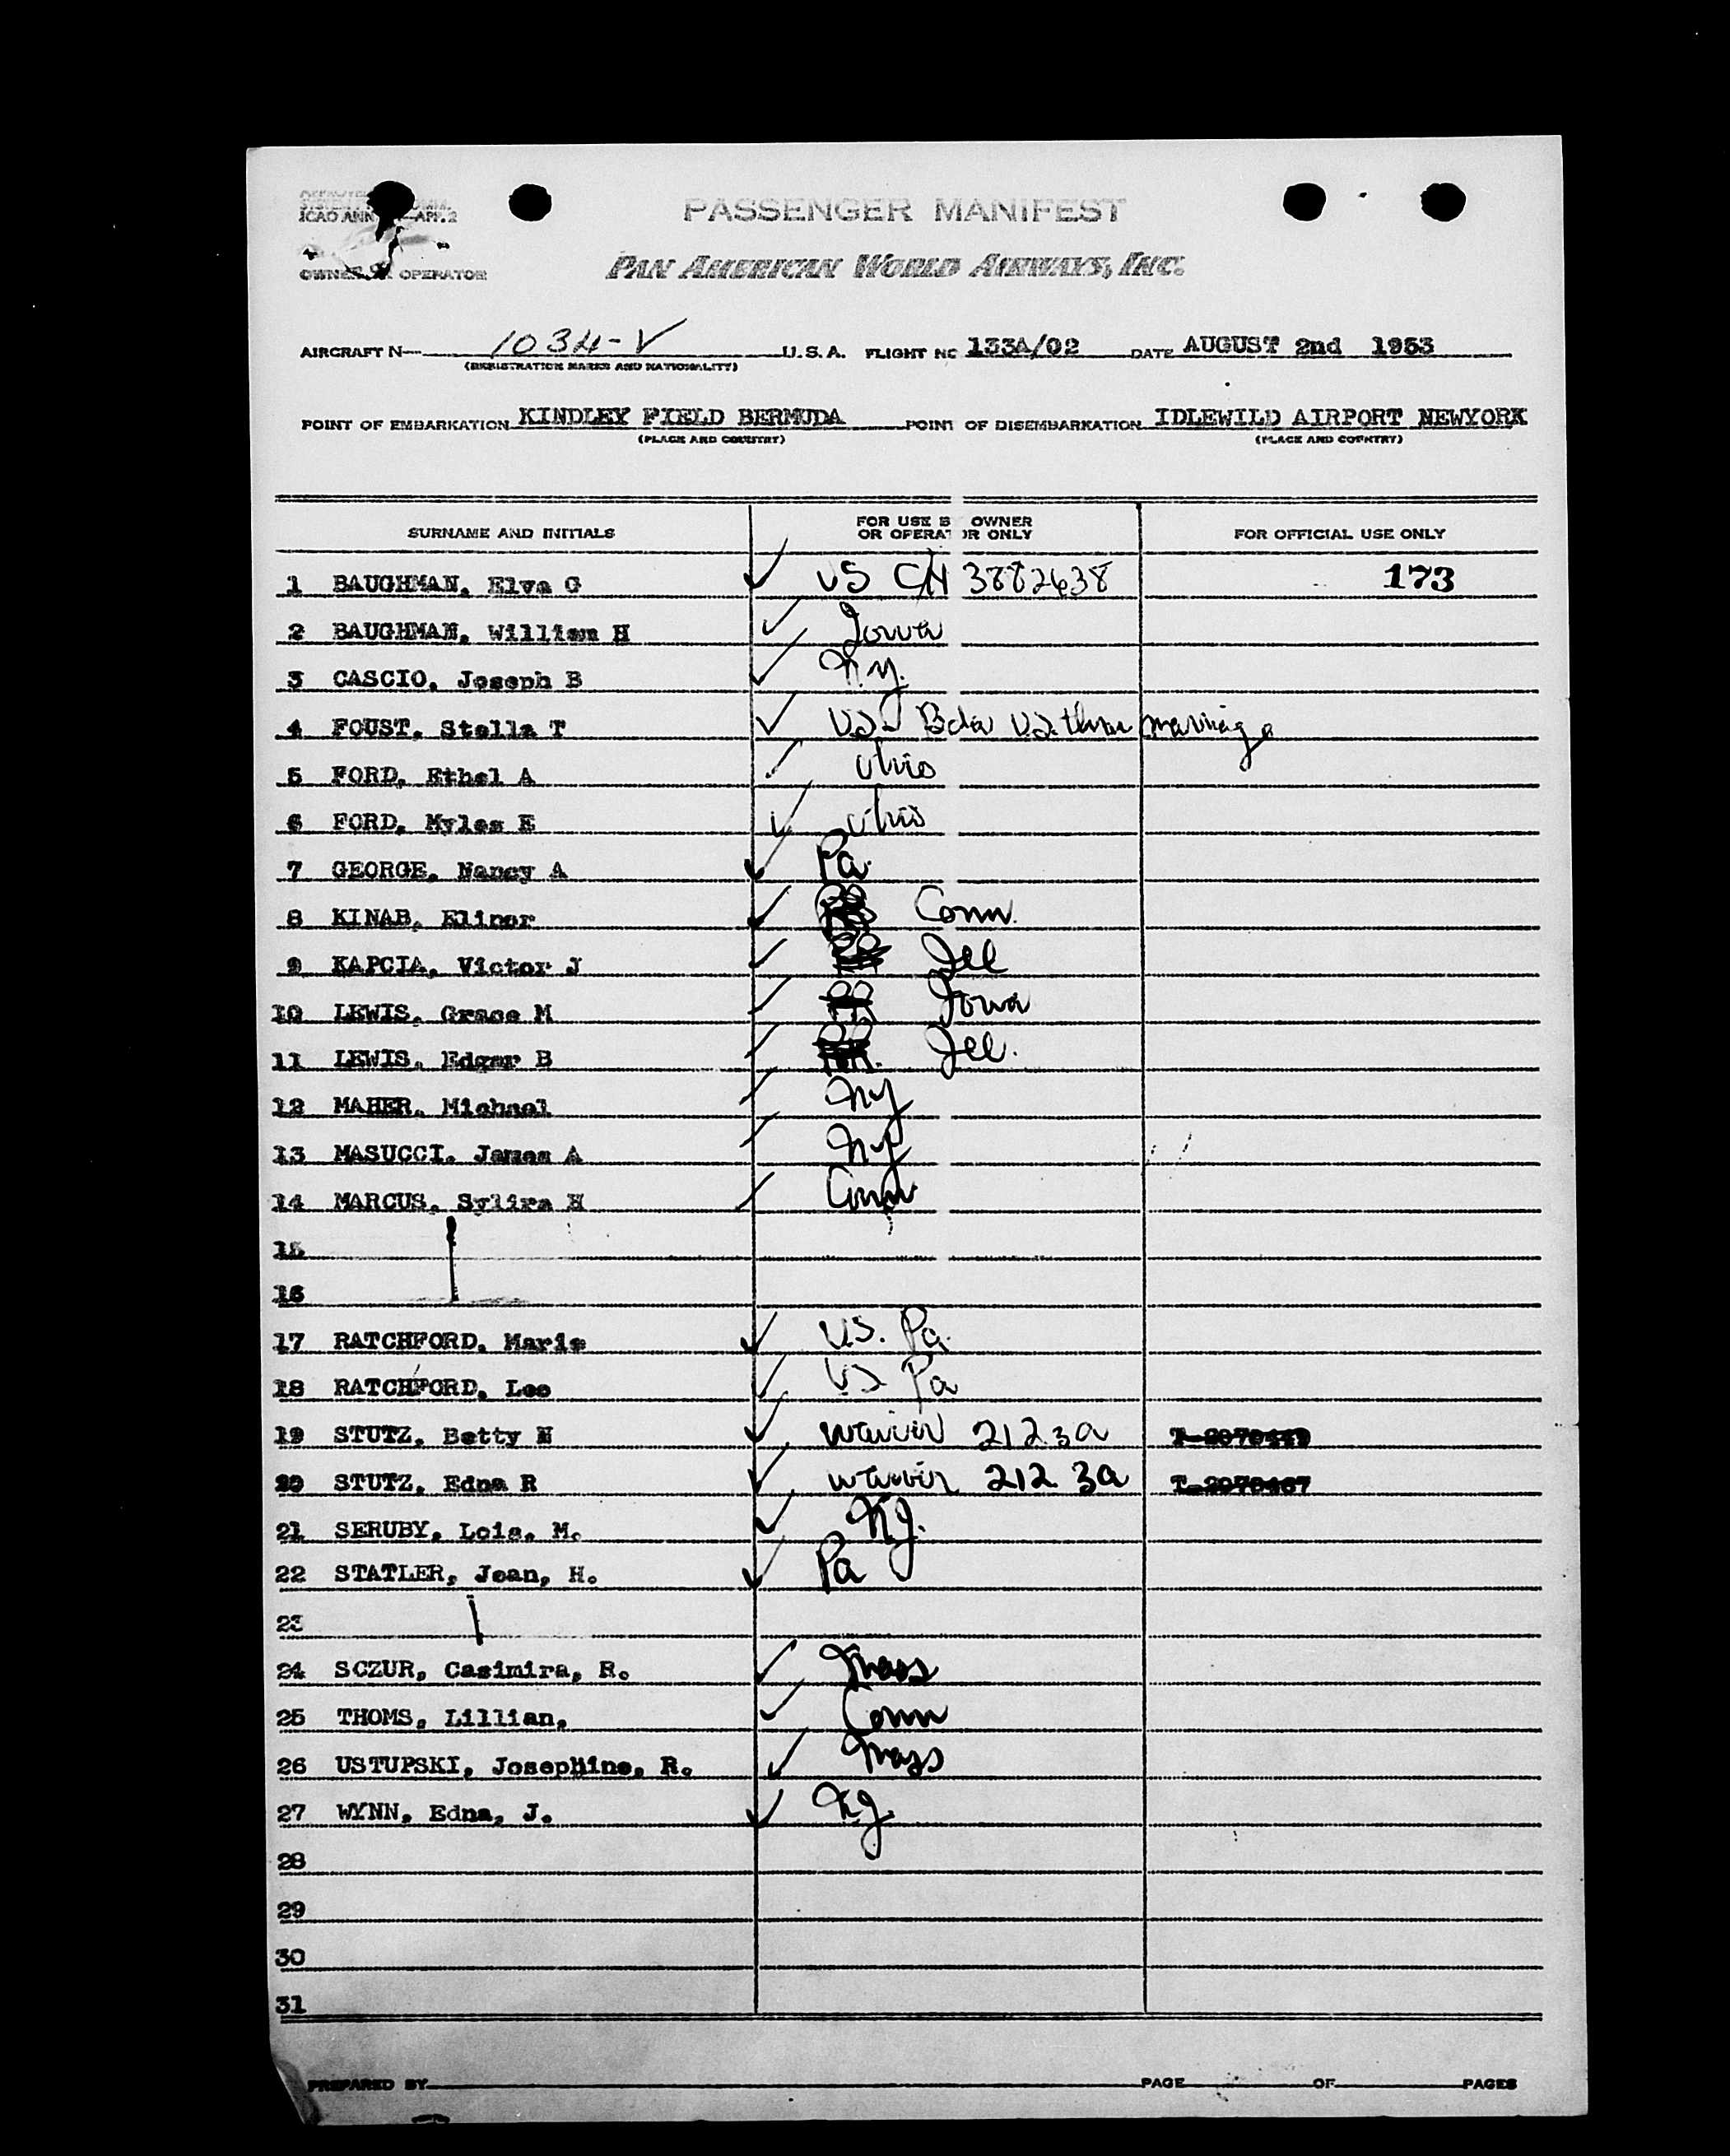 ICAO ANN APP. 2
PASSENGER MANIFEST
OWNER OR OPERATOR
PAN AMERICAN WORLD AIRWAYS, INC.
AIRCRAFT N 1034-V U.S.A. FLIGHT NO 133A/02 DATE AUGUST 2nd 1953
(REGISTRATION MARKS AND NATIONALITY)
POINT OF EMBARKATION KINDLEY FIELD BERMUDA POINT OF DISEMBARKATION IDLEWILD AIRPORT NEWYORK
(PLACE AND COUNTRY) (PLACE AND COUNTRY)
SURNAME AND INITIALS FOR USE B OWNER OR OPERATOR ONLY FOR OFFICIAL USE ONLY
1 BAUGHMAN, Elva G ✓ US C/N 3882638 173
2 BAUGHMAN, William H ✓ Iowa
3 CASCIO, Joseph B ✓ N.Y.
4 FOUST, Stella T ✓ U.S. Bda U.S. thru marriage
5 FORD, Ethel A ✓ Ohio
6 FORD, Myles E ✓ Ohio
7 GEORGE, Nancy A ✓ Pa.
8 KINAB, Elinor ✓ Conn.
9 KAPCIA, Victor J ✓ Ill
10 LEWIS, Grace M ✓ Iowa
11 LEWIS, Edgar B ✓ Ill.
12 MAHER, Michael ✓ NY
13 MASUCCI, James A ✓ NY
14 MARCUS, Sylira H ✓ Conn
15
16
17 RATCHFORD, Marie ✓ U.S. Pa.
18 RATCHFORD, Leo ✓ US Pa
19 STUTZ, Betty N ✓ waiver 212 3a T-2070449
20 STUTZ, Edna R ✓ waiver 212 3a T-2070467
21 SERUBY, Lois, M. ✓ NJ.
22 STATLER, Jean, H. ✓ Pa
23
24 SCZUR, Casimira, R. ✓ Mass
25 THOMS, Lillian, ✓ Conn
26 USTUPSKI, Josephine, R. ✓ Mass
27 WYNN, Edna, J. ✓ NJ.
28
29
30
31
PREPARED BY PAGE OF PAGES